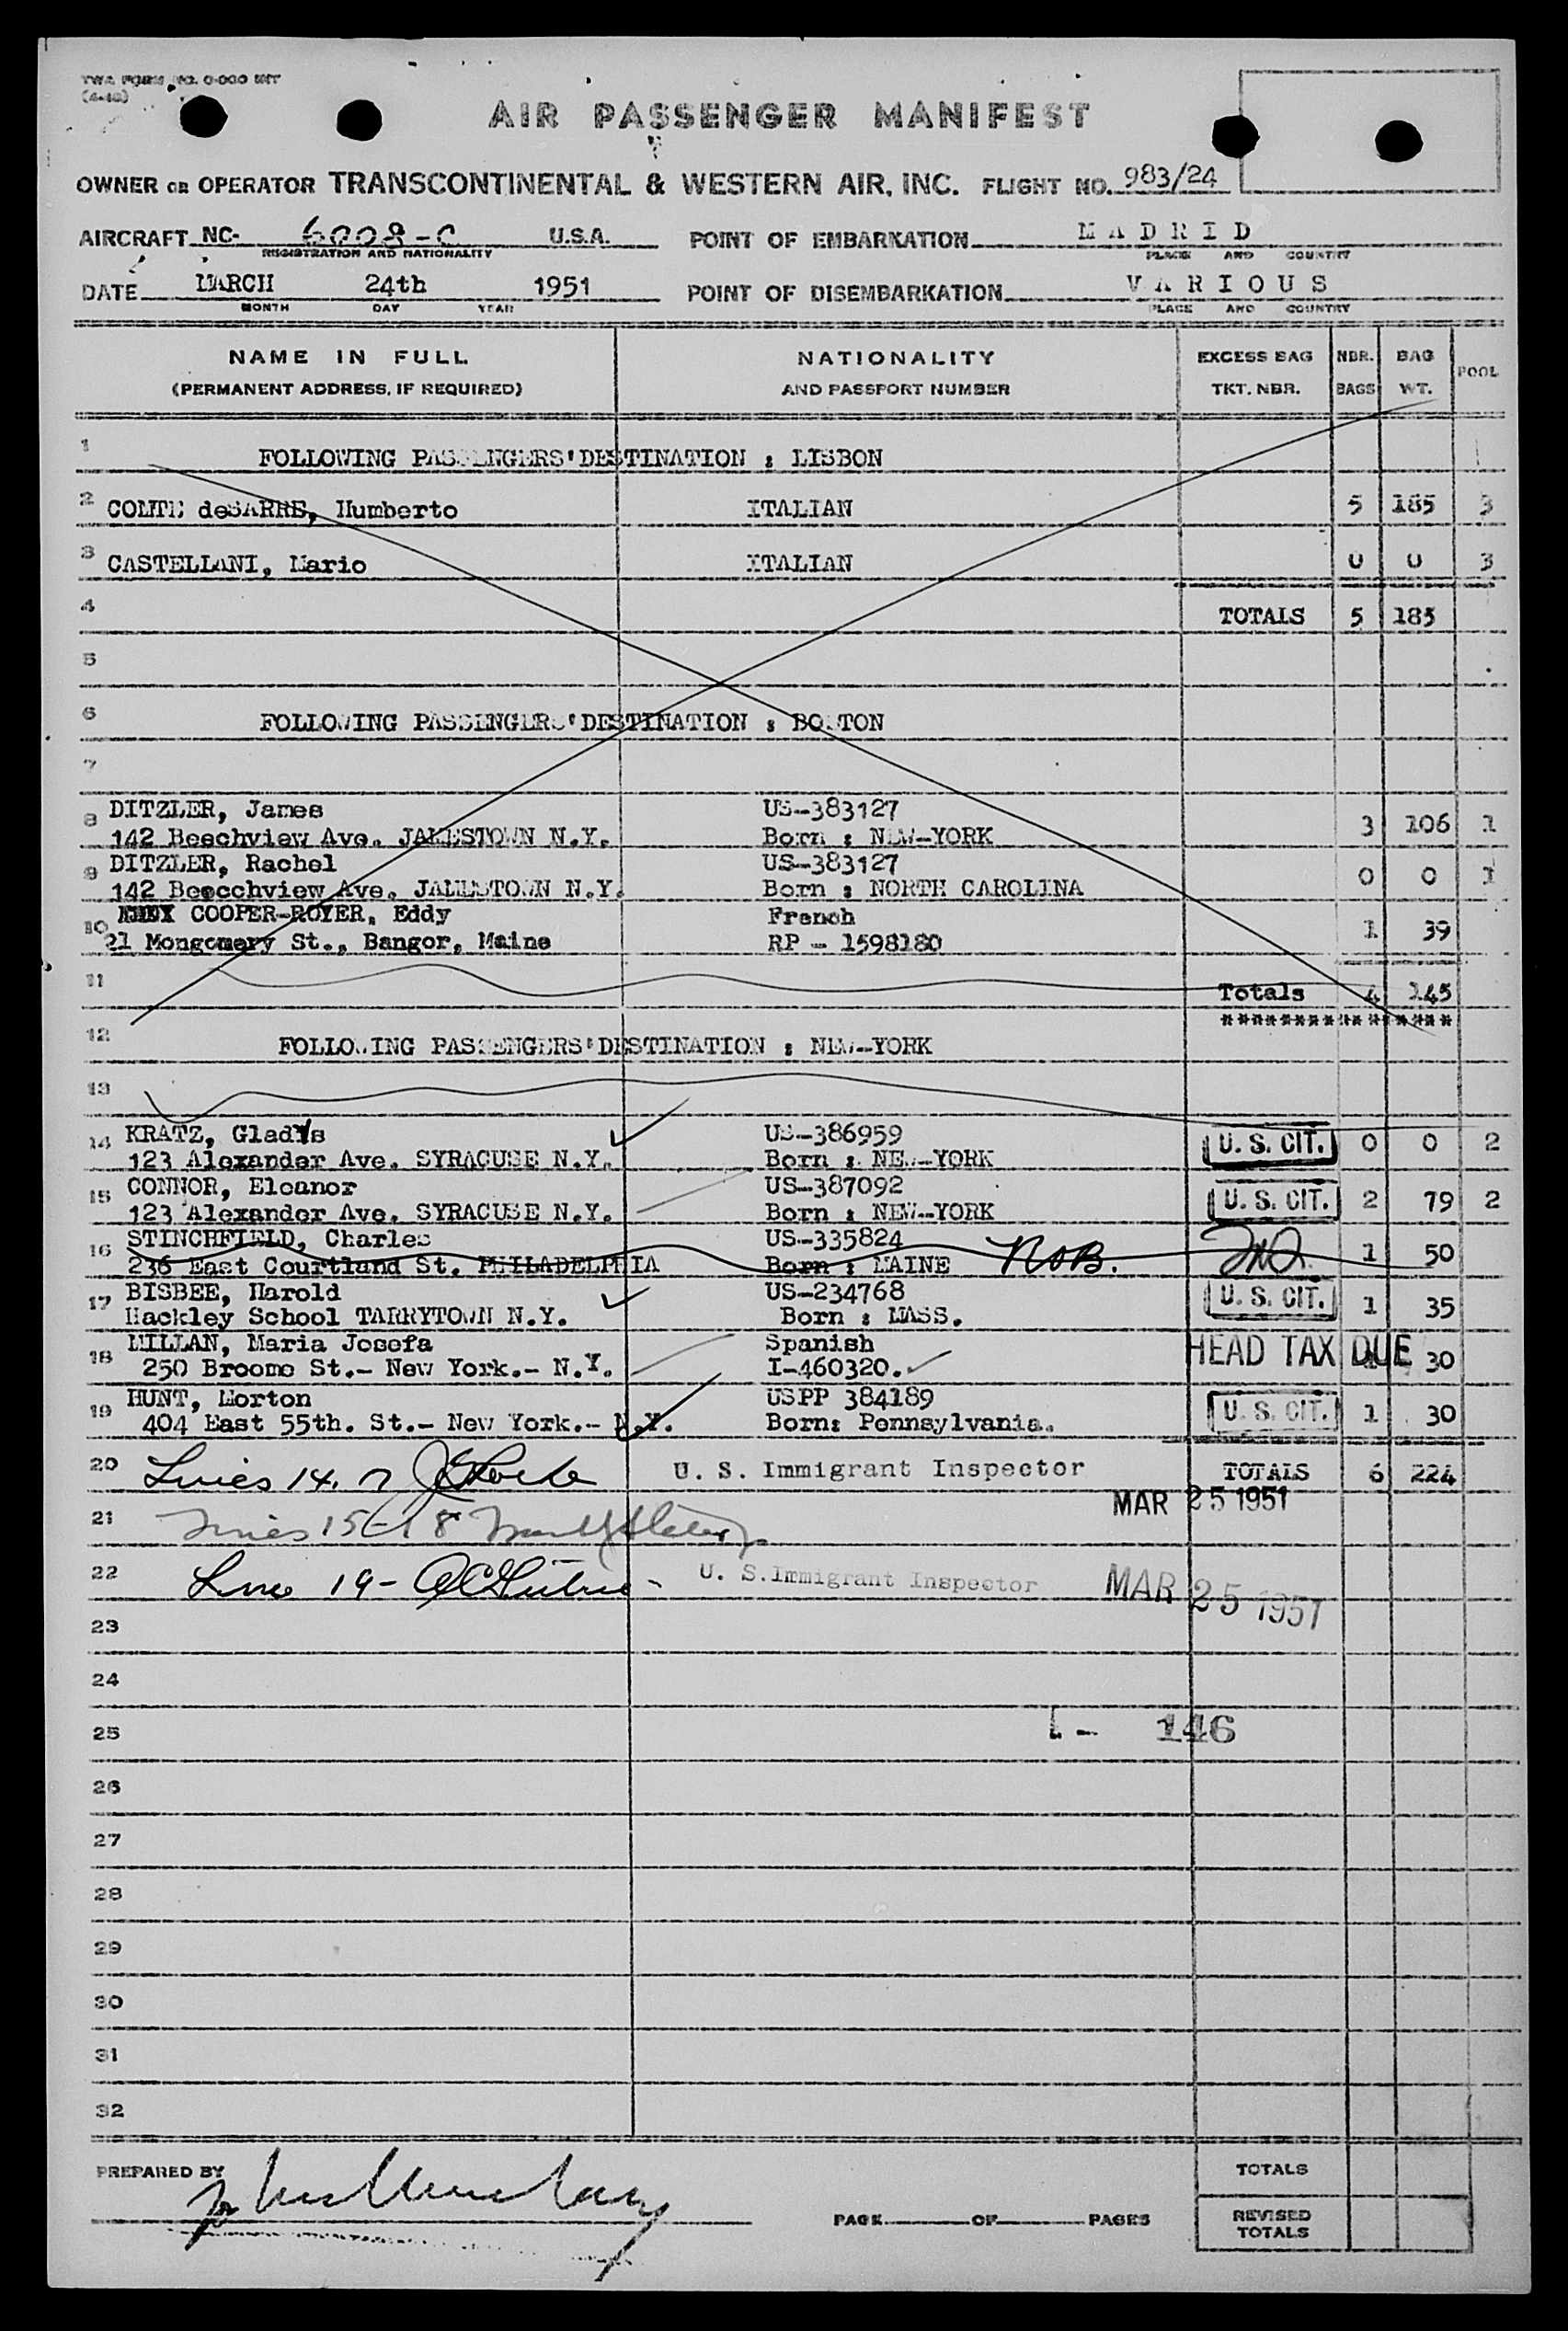 TWA FORM NO. 0-000 INT
(4-48)
AIR PASSENGER MANIFEST
OWNER OR OPERATOR TRANSCONTINENTAL & WESTERN AIR, INC. FLIGHT NO. 983/24
AIRCRAFT NC- 6008-C U.S.A. POINT OF EMBARKATION MADRID
REGISTRATION AND NATIONALITY PLACE AND COUNTRY
DATE MARCH 24th 1951 POINT OF DISEMBARKATION VARIOUS
MONTH DAY YEAR PLACE AND COUNTRY
NAME IN FULL NATIONALITY EXCESS BAG NBR. BAG POOL
(PERMANENT ADDRESS, IF REQUIRED) AND PASSPORT NUMBER TKT. NBR. BAGS WT.
1 FOLLOWING PASSENGERS'DESTINATION : LISBON
2 COMTE deSARRE, Humberto ITALIAN 5 185 3
3 CASTELLANI, Mario ITALIAN 0 0 3
4 TOTALS 5 185
5
6 FOLLOWING PASSENGERS'DESTINATION : BOSTON
7
8 DITZLER, James US-383127 3 106 1
142 Beechview Ave. JAMESTOWN N.Y. Born : NEW-YORK
9 DITZLER, Rachel US-383127 0 0 1
142 Beecchview Ave. JAMESTOWN N.Y. Born : NORTH CAROLINA
10 COOPER-ROYER, Eddy French 1 39
21 Mongomery St., Bangor, Maine RP - 1598180
11 Totals 4 145
****************
12 FOLLOWING PASSENGERS'DESTINATION : NEW-YORK
13
14 KRATZ, Gladys US-386959 U. S. CIT. 0 0 2
123 Alexander Ave. SYRACUSE N.Y. Born : NEW-YORK
15 CONNOR, Eleanor US-387092 U. S. CIT. 2 79 2
123 Alexander Ave. SYRACUSE N.Y. Born : NEW-YORK
16 STINCHFIELD, Charles US-335824 1 50
236 East Courtland St. PHILADELPHIA Born : MAINE NOB.
17 BISBEE, Harold US-234768 U. S. CIT. 1 35
Hackley School TARRYTOWN N.Y. Born : MASS.
18 MILLAN, Maria Josefa Spanish HEAD TAX DUE 30
250 Broome St.- New York.- N.Y. I-460320.
19 HUNT, Morton USPP 384189 U. S. CIT. 1 30
404 East 55th. St.- New York.- N.Y. Born: Pennsylvania.
20 Lines 14, 17 U. S. Immigrant Inspector TOTALS 6 224
MAR 25 1951
21 Lines 15-18
22 Line 19- U. S. Immigrant Inspector MAR 25 1951
23
24
25 - 146
26
27
28
29
30
31
32
PREPARED BY TOTALS
PAGE OF PAGES REVISED
TOTALS